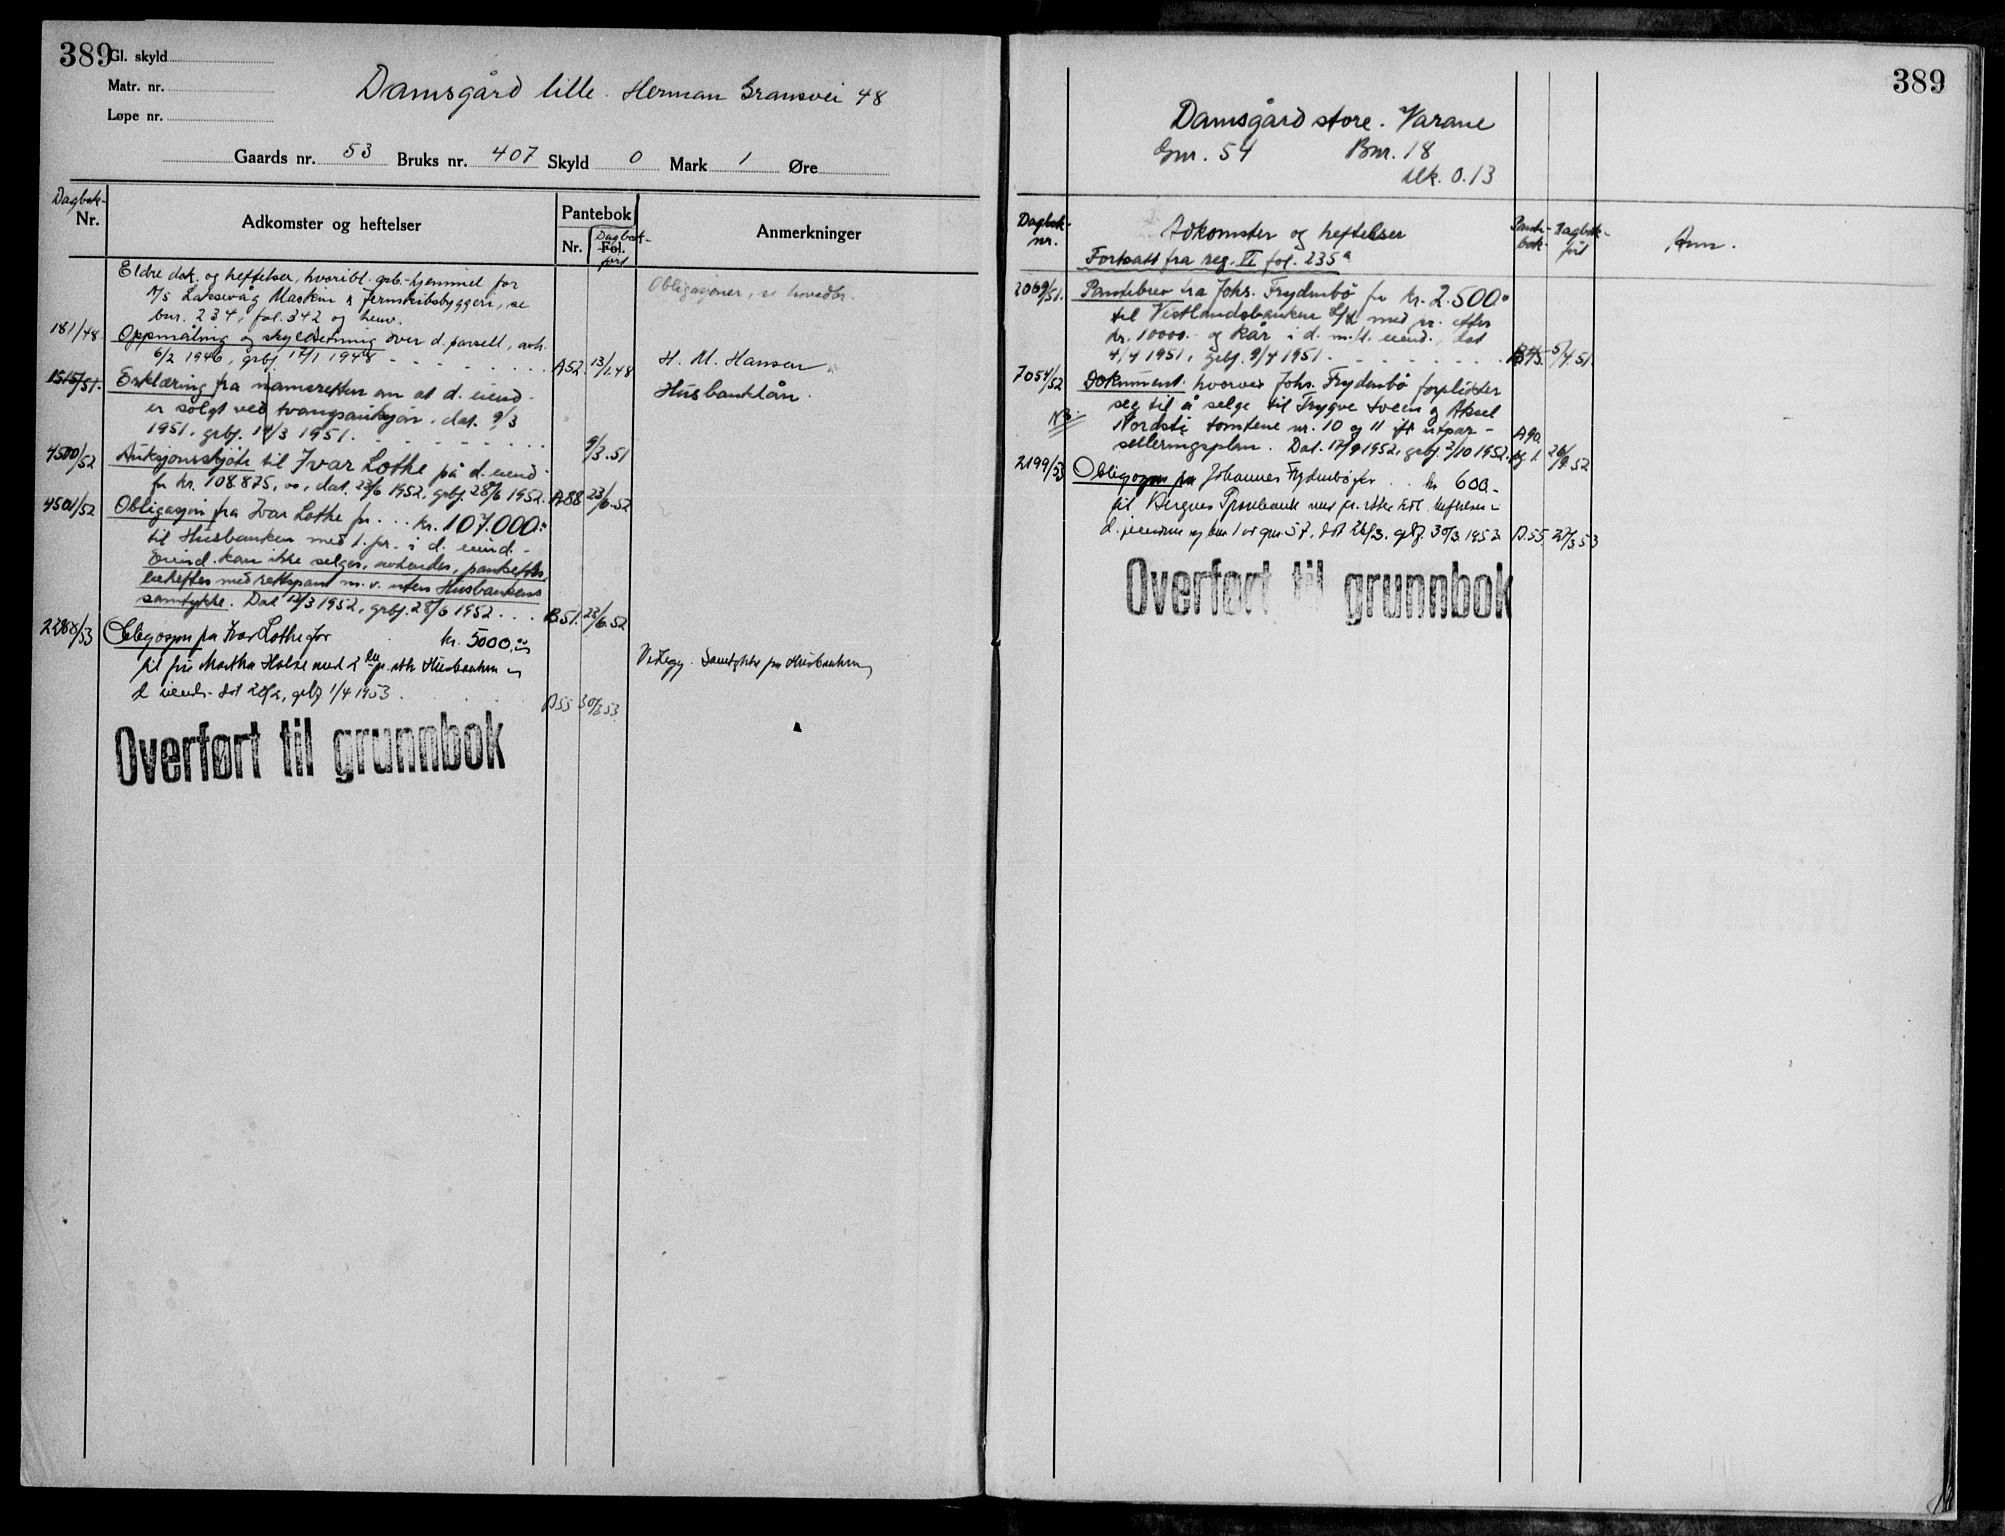 389
Gl. skyld
Matr. nr.
Løpe nr.
Damsgård lille. Herman Gransvei 48
Gaards nr. 53 Bruks nr. 407 Skyld 0 Mark 1 Øre
Dagbok-
Nr.
Adkomster og heftelser
Pantebok
Nr.
Dagbok-
Fol.
ført
Anmerkninger
Eldre dok. og heftelser, hvoribl. grb-hjemmel for
A/S Laksevåg Maskin & Jernskibsbyggeri, se
bnr. 234, fol. 342 og henv.
Obligasjoner, se hovedbr.
181/48 Oppmåling og skyldsetning over d. parsell, avh.
6/2 1946, grbf. 17/1 1948 A52. 13/1.48 H. M. Hansen
1515/51. Erklæring fra namsretten om at d. eiend. Husbanklån.
er solgt ved tvangsauksjon, dat. 9/3
1951, grbf. 14/3 1951. 9/3.51
4500/52 Auksjonsskjøte til Ivar Lothe på d. eiend.
for kr. 108.875,00, dat. 23/6 1952, grbf. 28/6 1952. A88 23/6.52
4501/52 Obligasjon fra Ivar Lothe for ... kr. 107.000.-
til Husbanken med 1. pr. i d. eiend.
Eiend. kan ikke selges, avhendes, pantsettes,
beheftes med rettspant m.v. uten Husbankens
samtykke. Dat. 12/3 1952, grbf. 28/6 1952 ... B51. 23/6.52
2288/53 Obligasjon fra Ivar Lothe for kr. 5000,00
til fru Martha Holse med 2 pr. etter Husbanken i
d. eiend. dat 28/2, grbf 1/4 1953. B55 30/3.53
Vedlegg. Samtykke fra Husbanken
Overført til grunnbok
389
Damsgård store. Varane
Gnr. 54 Bnr. 18
Mk. 0.13
Dagbok-
nr.
Adkomster og heftelser
Fortsatt fra reg. VI fol. 235a
Pante-
bok-
Dagbok-
ført
Anm.
2069/51. Pantebrev fra Johs. Frydenbø for kr. 2.500.-
til Vestlandsbanken L/L med pr. etter
kr. 10000.- og kår i d. m.fl. eiend., dat
4/4 1951, grbf. 9/4 1951. B45. 5/4.51.
7054/52 Dokument hvorved Johs. Frydenbø forplikter
seg til å selge til Trygve Sveen og Aksel
NB. Nordstì tomtene nr. 10 og 11 ifl utpar-
selleringsplan. Dat. 17/9 1952, grbf. 2/10 1952. A90. 26/9.52
2199/53 Obligasjon fra Johannes Frydenbø for .. kr 600.-
til Bergens Privatbank med pr. etter tidl. heftelser i
d. eiendom og bnr 1 av gnr 57. dat 26/3. grbf. 30/3 1953 B.55. 27/3.53
Overført til grunnbok